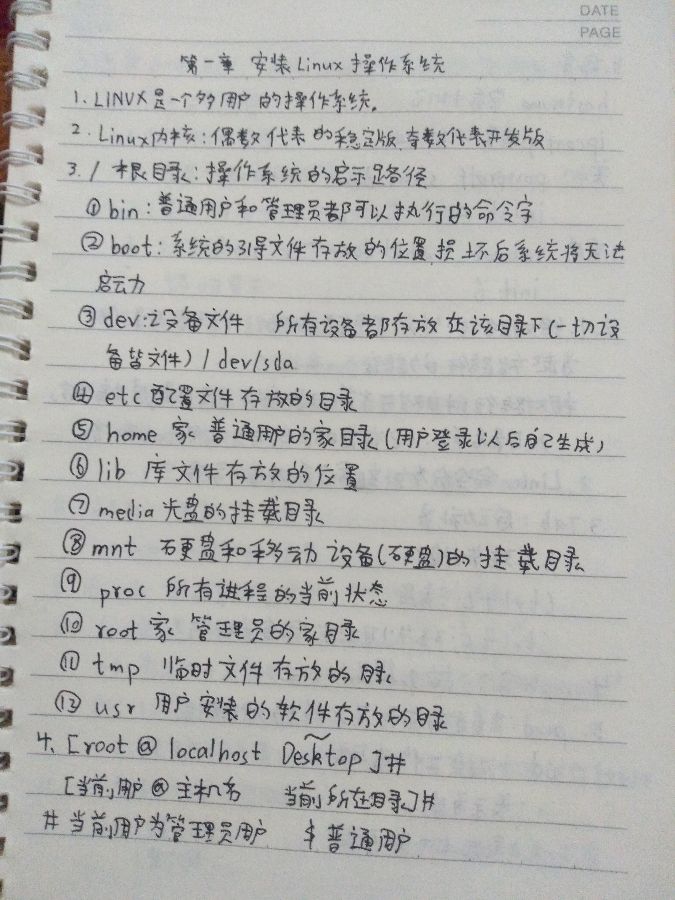 DATE
PAGE
第一章 安装Linux操作系统
1. LINVX是一个多用户的操作系统.
2. Linux内核:偶数代表的稳定版 奇数代表开发版
3. / 根目录:操作系统的启示路径
① bin:普通用户和管理员都可以执行的命令字
② boot:系统的引导文件存放的位置 损坏后系统将无法
启动
③ dev:设备文件 所有设备都存放在该目录下(一切设
备皆文件) /dev/sda
④ etc 配置文件存放的目录
⑤ home 家 普通用户的家目录(用户登录以后自己生成)
⑥ lib 库文件存放的位置
⑦ media 光盘的挂载目录
⑧ mnt 硬盘和移动设备(硬盘)的挂载目录
⑨ proc 所有进程的当前状态
⑩ root 家 管理员的家目录
⑪ tmp 临时文件存放的目录
⑫ usr 用户安装的软件存放的目录
4. [root @ localhost Desktop]#
[当前用户@主机名 当前所在目录]#
# 当前用户为管理员用户 $ 普通用户